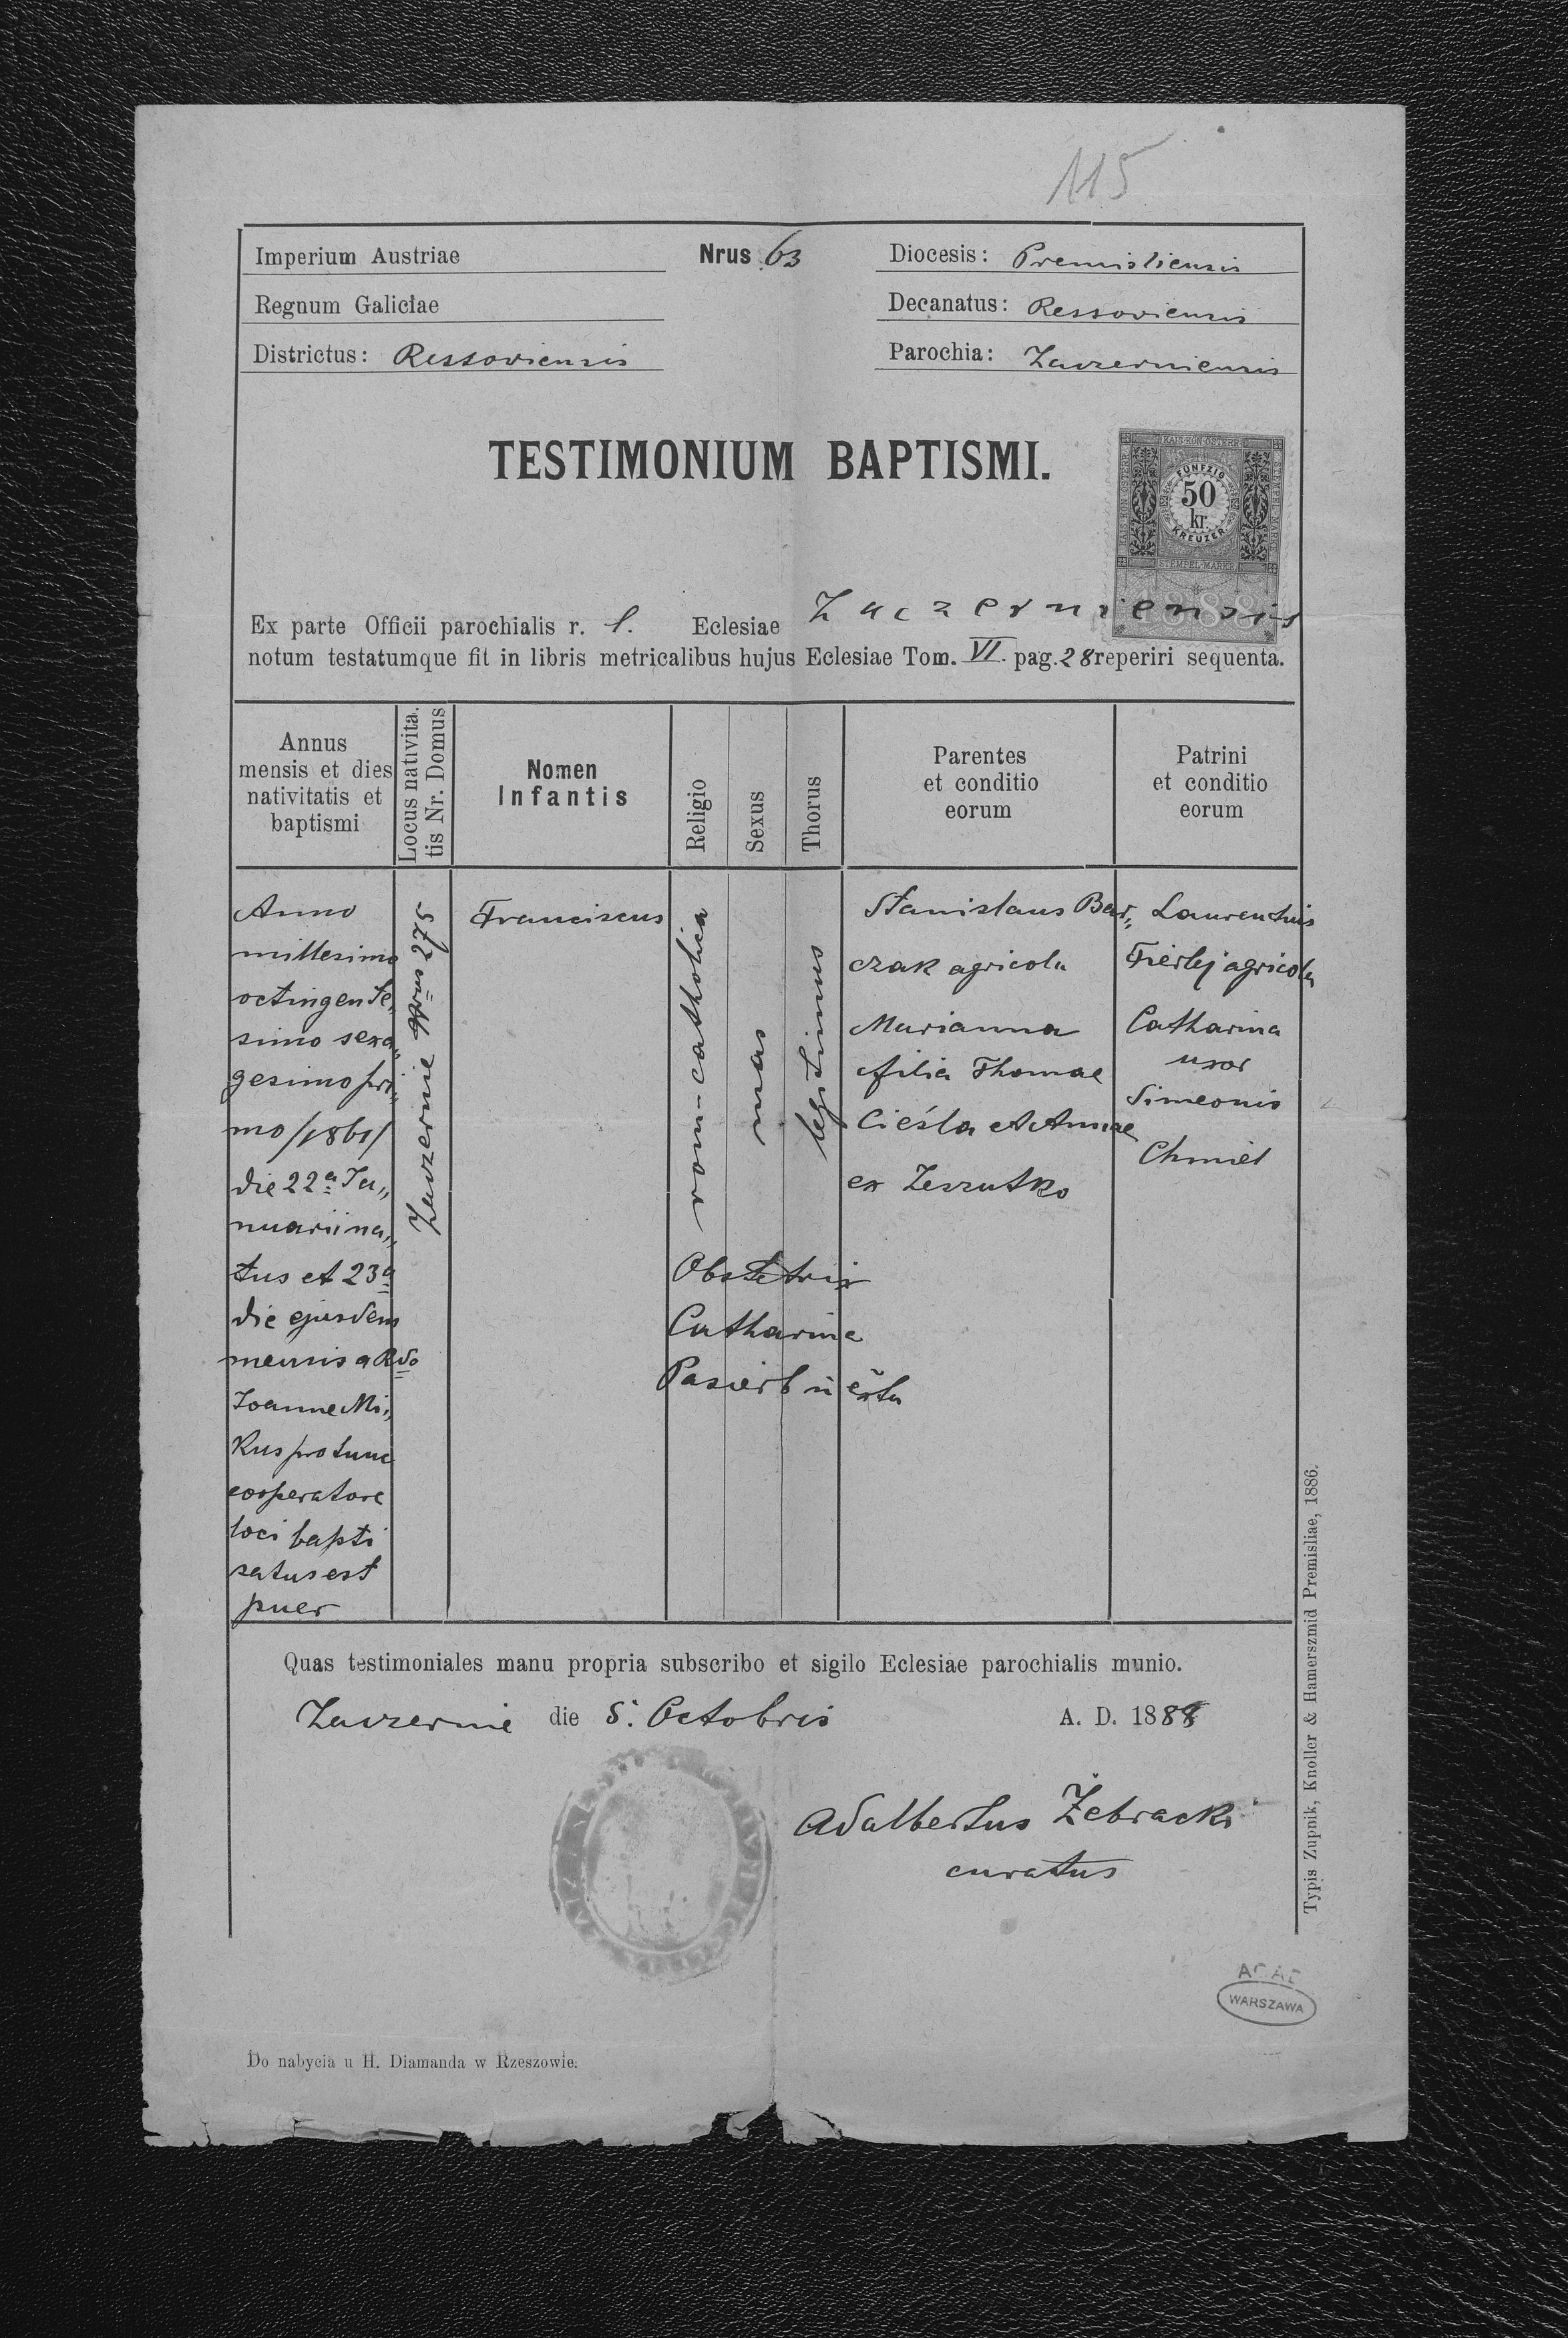 115
Imperium Austriae
Nrus 63
Diocesis: Premisliensis
Regnum Galiciae
Decanatus: Ressoviensis
Districtus: Ressoviensis
Parochia: Zaczerniensis
TESTIMONIUM BAPTISMI.
KAIS. KÖN. ÖSTERR.
FÜNFZIG
50
kr.
KREUZER
STEMPEL-MARKE
1888
Ex parte Officii parochialis r. l. Eclesiae Zaczerniensis
notum testatumque fit in libris metricalibus hujus Eclesiae Tom. VI. pag. 28 reperiri sequenta.
Annus
mensis et dies
nativitatis et
baptismi
Locus nativita.
tis Nr. Domus
Nomen
Infantis
Religio
Sexus
Thorus
Parentes
et conditio
eorum
Patrini
et conditio
eorum
Anno
millesimo
octingente,,
simo sexa,,
gesimo pri,,
mo /1861/
die 22a Ja,,
nuarii na,,
tus et 23a
die ejusdem
mensis a Rdo
Joanne Mi,,
kus pro tunc
cooperatore
loci bapti
satus est
puer
Zaczernie Nrus 275
Franciscus
rom-catholica
mas
legitimus
Obstetrix
Catharina
Stanislaus Bar,,
czak agricola
Marianna
filia Thomae
Cieśla et Annae
ex Zeszutko
Laurentius
agricola
Catharina
uxor
Simeonis
Chmiel
Quas testimoniales manu propria subscribo et sigilo Eclesiae parochialis munio.
Zaczernie die 5. Octobris A. D. 1888
Adalbertus Żebracki
curatus
Typis Zupnik, Knoller & Hamerszmid Premisliae, 1886.
AGAD
WARSZAWA
Do nabycia u H. Diamanda w Rzeszowie.